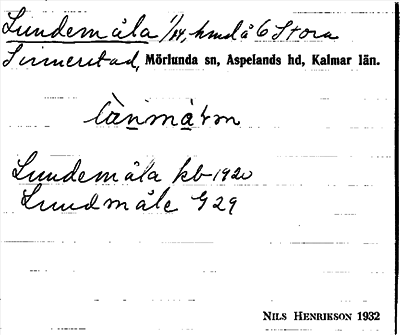 Lundemåla 1/24, hmd å 6 Stora
Sinnerstad, Mörlunda sn, Aspelands hd, Kalmar län.
Lundemåla kb-1920
Lundmåle G 29
NILS HENRIKSON 1932